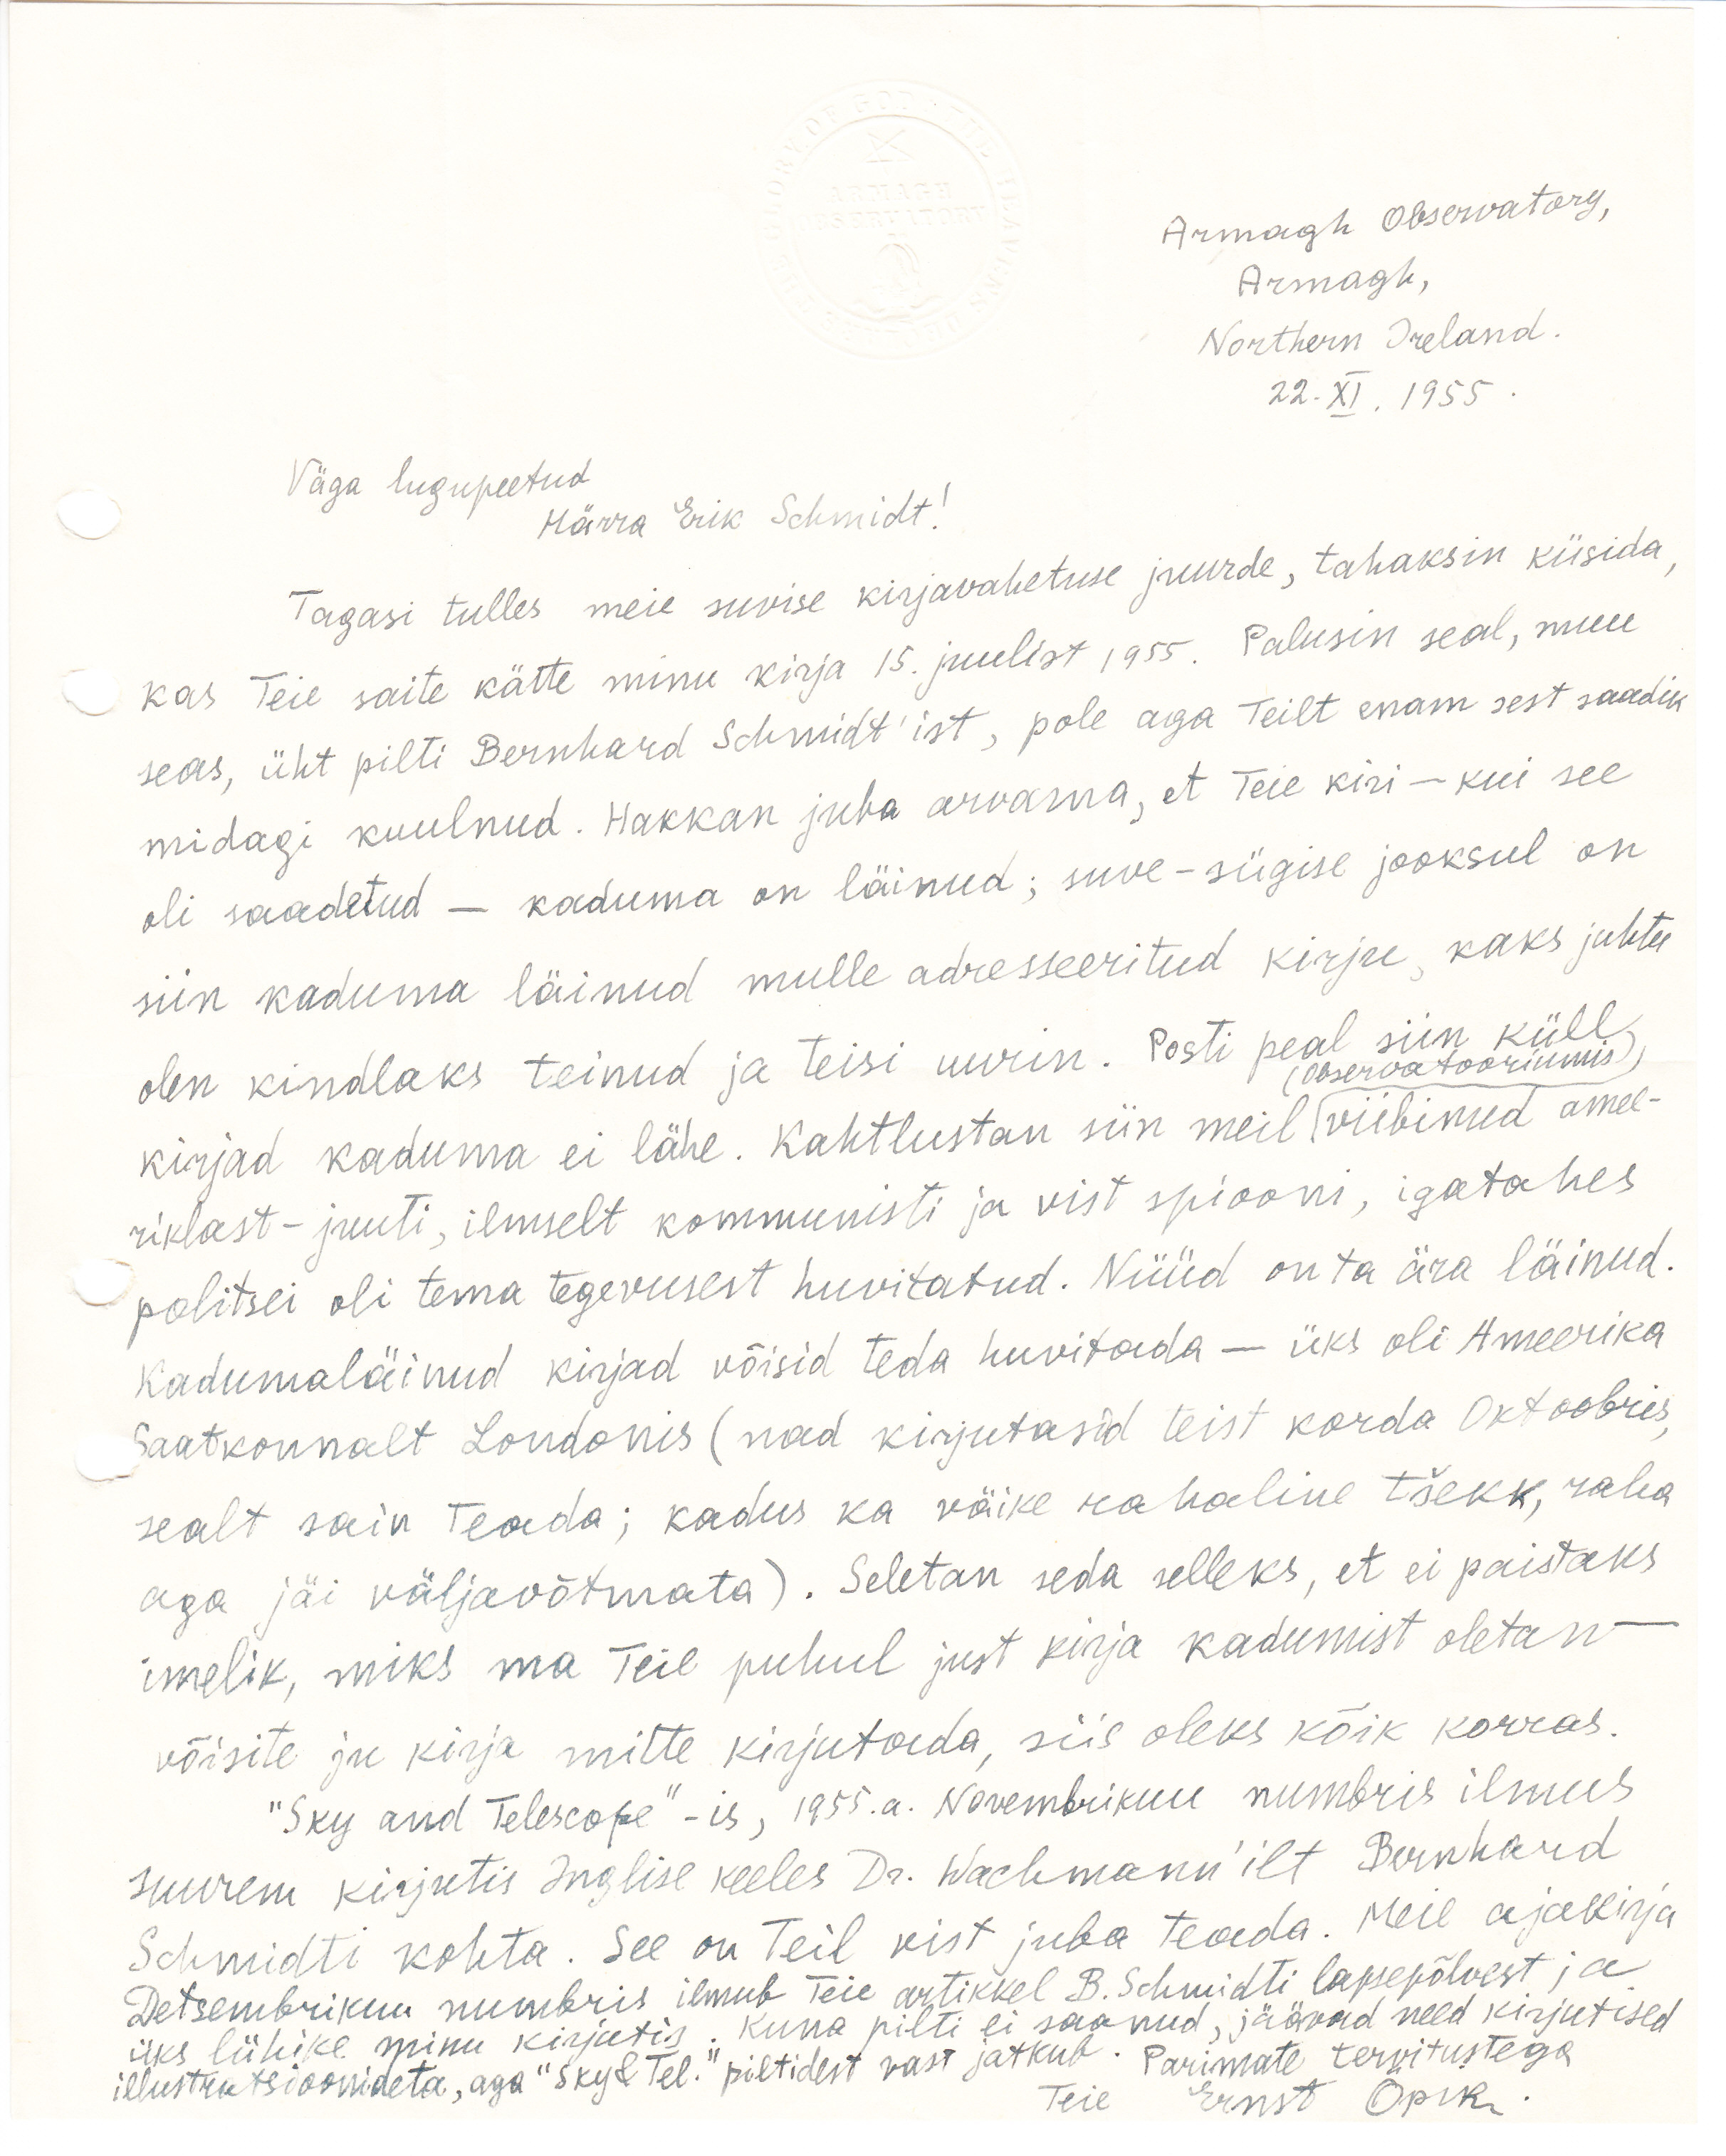 ARMAGH
OBSERVATORY
Armagh Observatory,
Armagh,
Northern Ireland.
22. XI. 1955.
Väga lugupeetud
Härra Erik Schmidt!
Tagasi tulles meie suvise kirjavahetuse juurde, tahaksin küsida,
kas Teie saite kätte minu kirja 15. juulist 1955. Palusin seal, muu
seas, üht pilti Bernhard Schmidt'ist, pole aga Teilt enam sest saadik
midagi kuulnud. Hakkan juba arvama, et Teie kiri – kui see
oli saadetud – kaduma on läinud; suve-sügise jooksul on
siin kaduma läinud mulle adresseeritud kirju, kaks juhtu
olen kindlaks teinud ja teisi uurin. Posti peal siin küll
(observatooriumis)
kirjad kaduma ei lähe. Kahtlustan siin meil viibinud amee-
riklast-juuti, ilmselt kommunisti ja vist spiooni, igatahes
politsei oli tema tegevusest huvitatud. Nüüd on ta ära läinud.
Kadumaläinud kirjad võisid teda huvitada – üks oli Ameerika
Saatkonnalt Londonis (nad kirjutasid teist korda Oktoobris,
sealt sain teada; kadus ka väike rahaline tšekk, raha
aga jäi väljavõtmata). Seletan seda selleks, et ei paistaks
imelik, miks ma Teie puhul just kirja kadumist oletan –
võisite ju kirja mitte kirjutada, siis oleks kõik korras.
"Sky and Telescope"-is, 1955.a. Novembrikuu numbris ilmus
suurem kirjutis Inglise keeles Dr. Wachmann'ilt Bernhard
Schmidti kohta. See on Teil vist juba teada. Meie ajakirja
Detsembrikuu numbris ilmub Teie artikkel B. Schmidti lapsepõlvest ja
üks lühike minu kirjutis. Kuna pilti ei saanud, jäävad need kirjutised
illustratsioonideta, aga "Sky & Tel." piltidest vast jatkub. Parimate tervitustega
Teie Ernst Öpik.